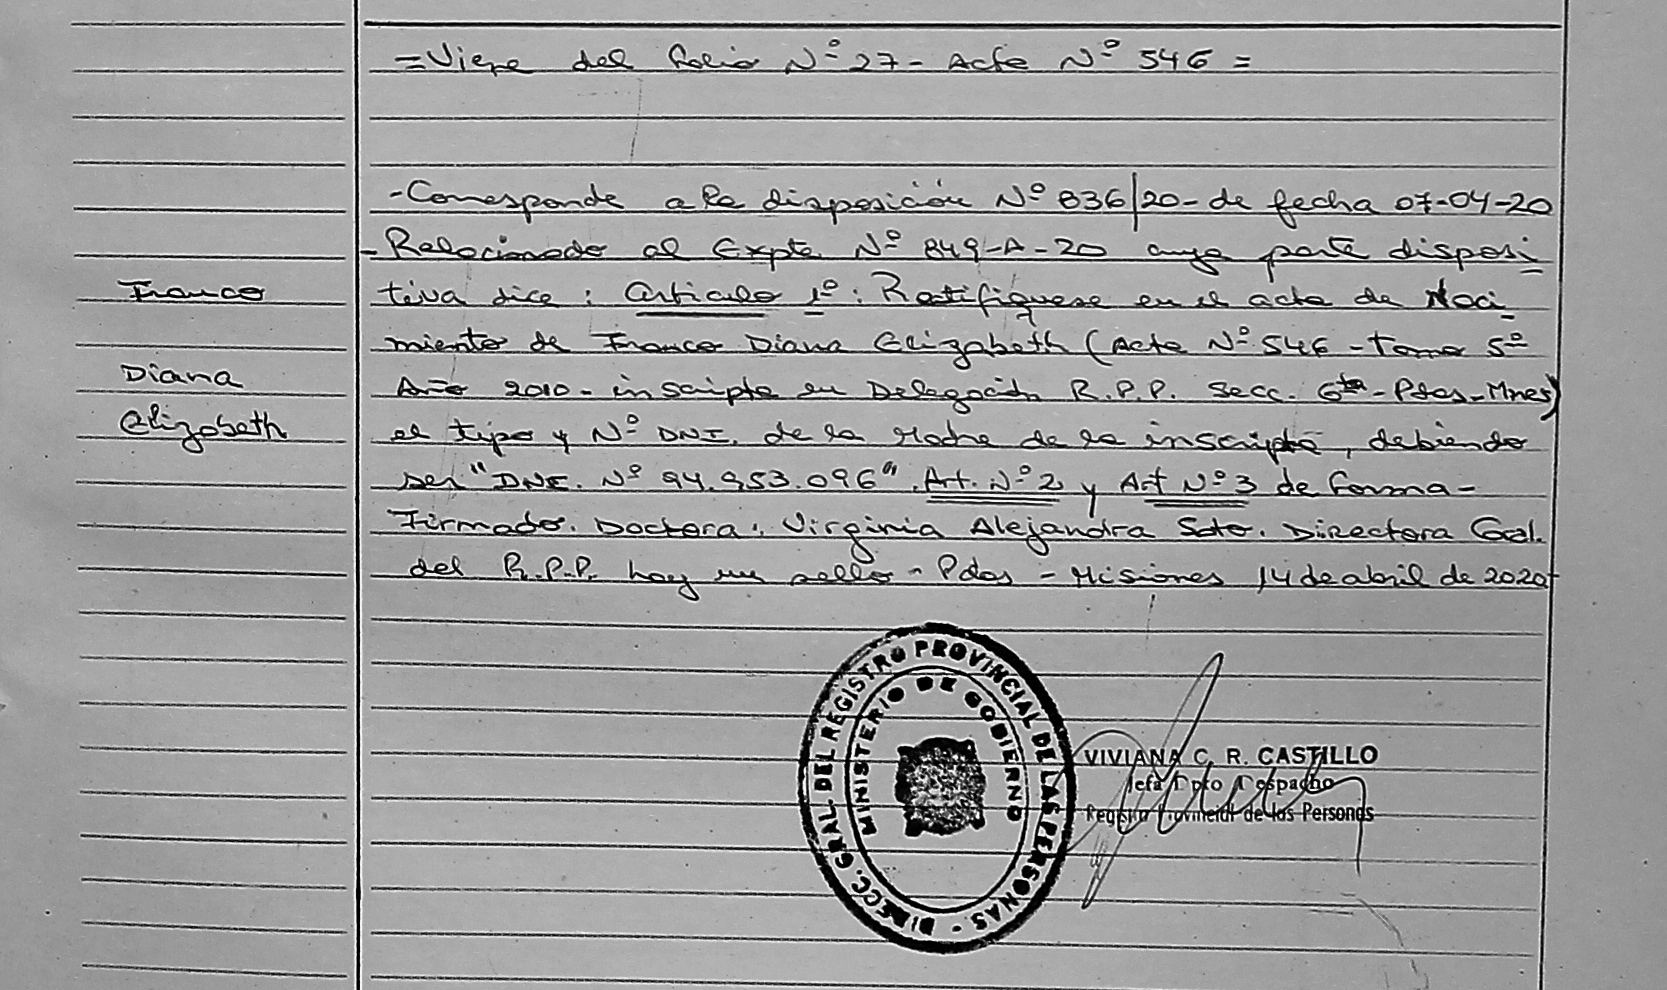 =Viene del folio Nº 27- Acta Nº 546 =
-Corresponde a la disposición Nº 836/20- de fecha 07-04-20
-Relacionado al Expte Nº 849-A-20 cuya parte disposi
Franco
tiva dice: Articulo 1º: Rectifiquese en el acta de Naci
miento de Franco Diana Elizabeth (Acta Nº 546 - Tomo 5º
Diana
Año 2010- inscripta en Delegación R.P.P. Secc. 6ta-Pdas-Mnes)
Elizabeth
el tipo y Nº DNI. de la Madre de la inscripta, debiendo
ser "DNI. Nº 94.953.096". Art. Nº 2 y Art Nº 3 de forma-
Firmado. Doctora. Virginia Alejandra Soto. Directora Gral.
del R.P.P. hay un sello - Pdas - Misiones 14 de abril de 2020
DIRECC. GRAL. DEL REGISTRO PROVINCIAL DE LAS PERSONAS -
MINISTERIO DE GOBIERNO
VIVIANA C. R. CASTILLO
Jefa Dpto Despacho
Registro Provincial de las Personas